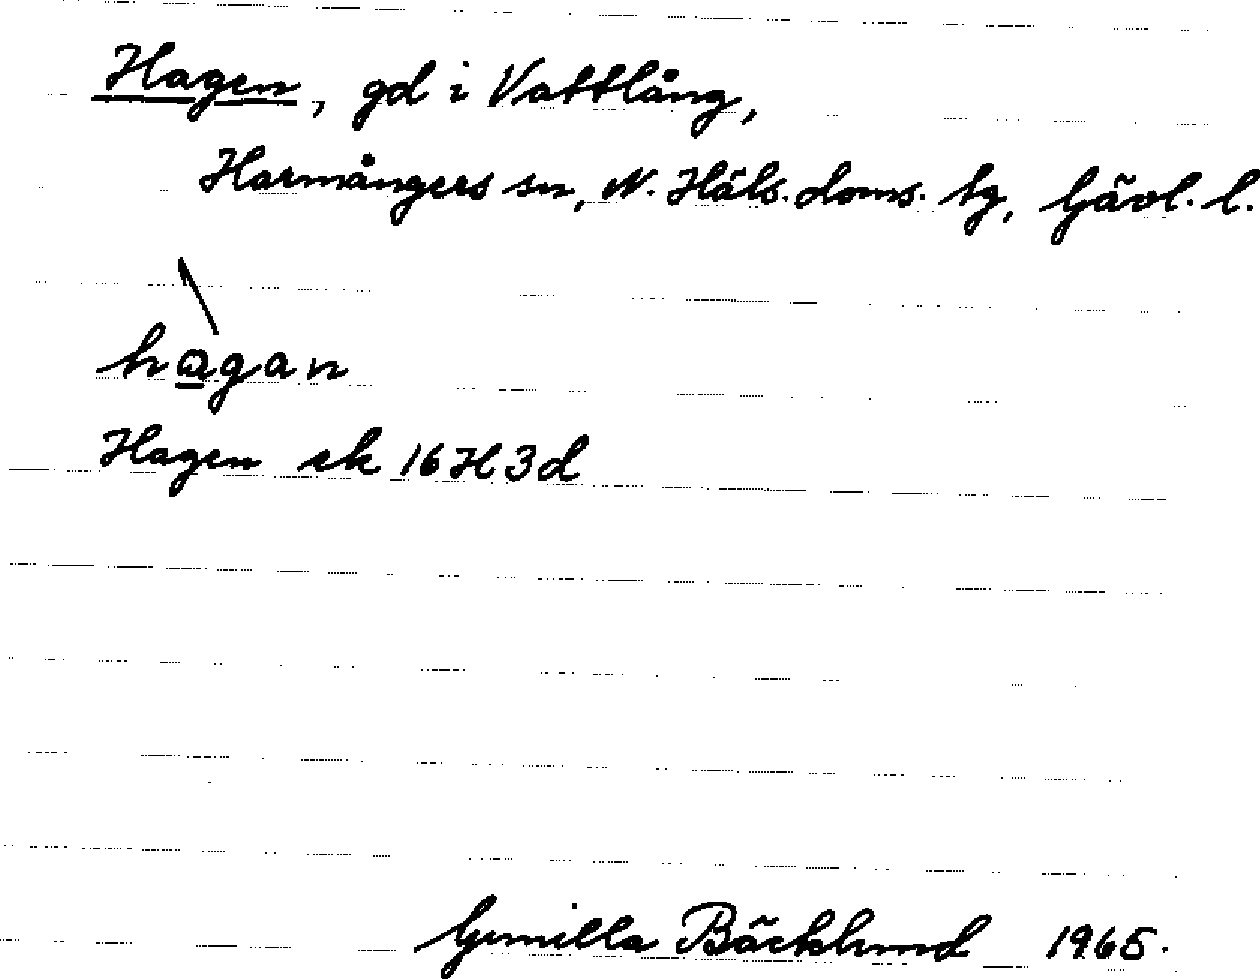 Hagen, gd i Vattlång,
Harmångers sn, N. Häls. doms. tg, Gävl. l.
hagan
Hagen ek 16H3d
Gunilla Bäcklund 1965.